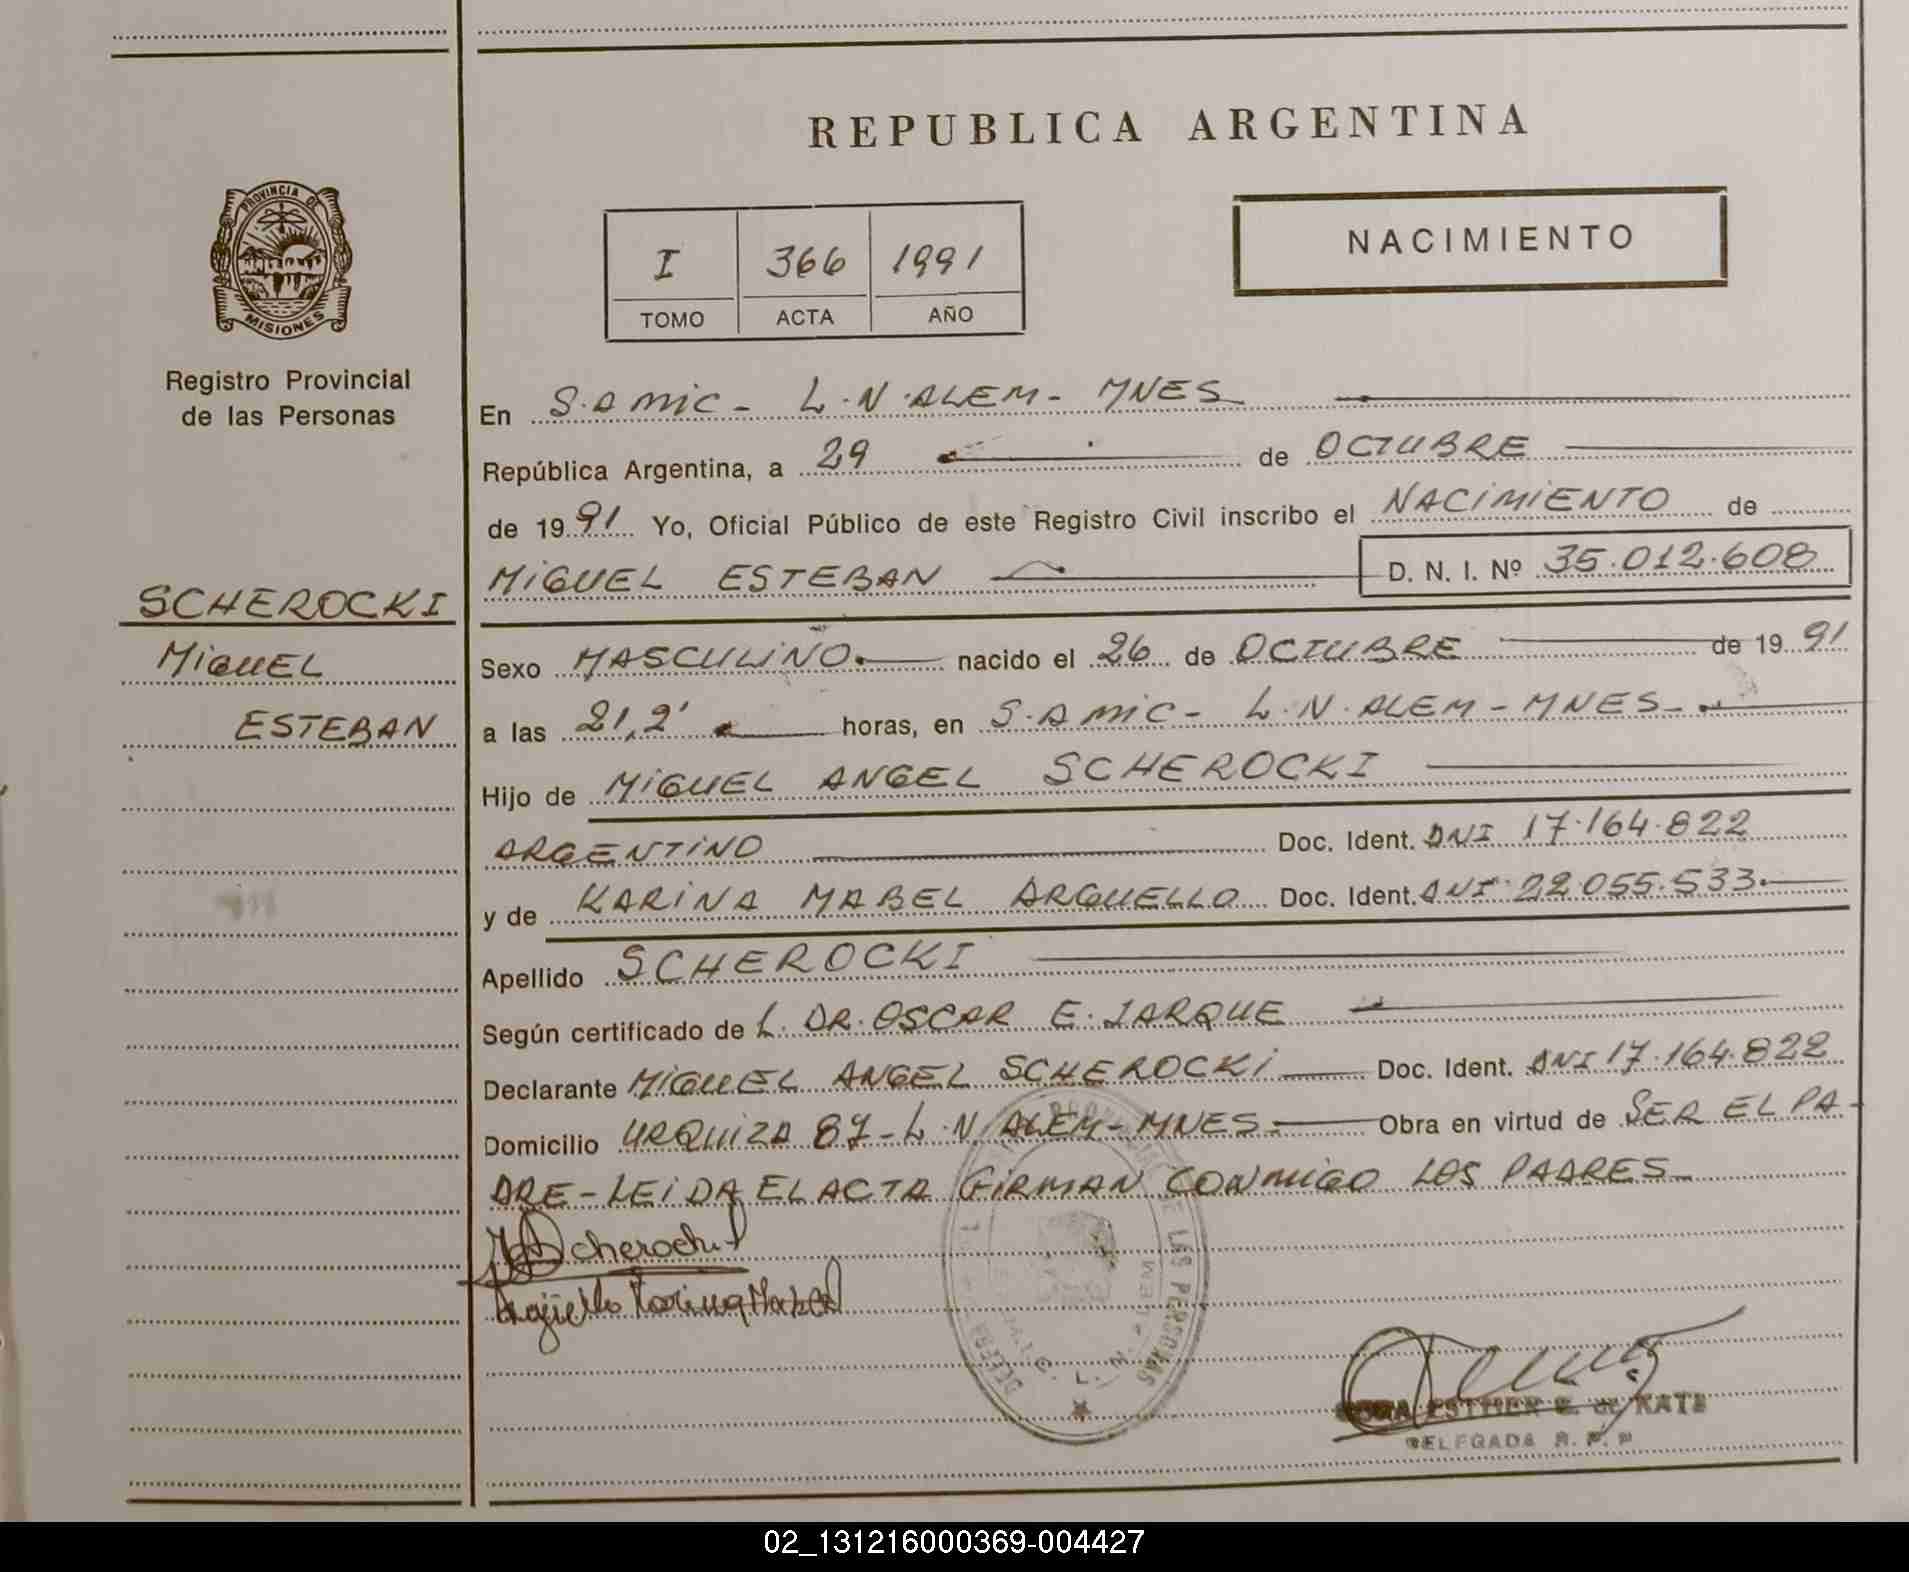 REPUBLICA ARGENTINA
PROVINCIA DE
MISIONES
Registro Provincial
de las Personas
I 366 1991
TOMO ACTA AÑO
NACIMIENTO
En S.AMIC - L.N.ALEM - MNES
República Argentina, a 29 de OCTUBRE
de 1991 Yo, Oficial Público de este Registro Civil inscribo el NACIMIENTO de
MIGUEL ESTEBAN D. N. I. Nº 35.012.608
SCHEROCKI
MIGUEL
ESTEBAN
Sexo MASCULINO. nacido el 26 de OCTUBRE de 1991
a las 21,2' horas, en S.AMIC - L.N.ALEM - MNES -
Hijo de MIGUEL ANGEL SCHEROCKI
ARGENTINO Doc. Ident. DNI 17.164.822
y de KARINA MABEL ARGUELLO Doc. Ident. DNI 22.055.533.
Apellido SCHEROCKI
Según certificado de L. DR. OSCAR E. JARQUE
Declarante MIGUEL ANGEL SCHEROCKI Doc. Ident. DNI 17.164.822
Domicilio URQUIZA 87 - L.N ALEM - MNES - Obra en virtud de SER EL PA-
DRE - LEIDA EL ACTA FIRMAN CONMIGO LOS PADRES -
Scherocki
Argüello Karina Mabel
DE LAS PERSONAS
ESTHER E. de KATZ
DELEGADA R. P. P
02_131216000369-004427